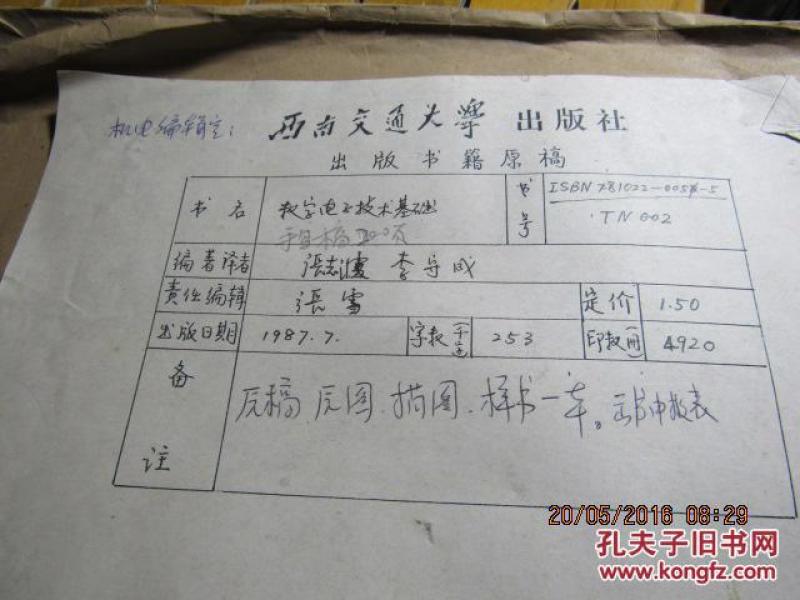 机电编辑室:
西南交通大学 出版社
出版书籍原稿
书名 数字电子技术基础 书号 ISBN 781022-005-5
手写稿200页 TN 002
编著译者 张志 李守成
责任编辑 張雪 定价 1.50
出版日期 1987.7. 字数(千字) 253 印数(册) 4920
备注 原稿.原图.描图.样书一本。云书申报表
20/05/2016 08:29
孔夫子旧书网
www.kongfz.com